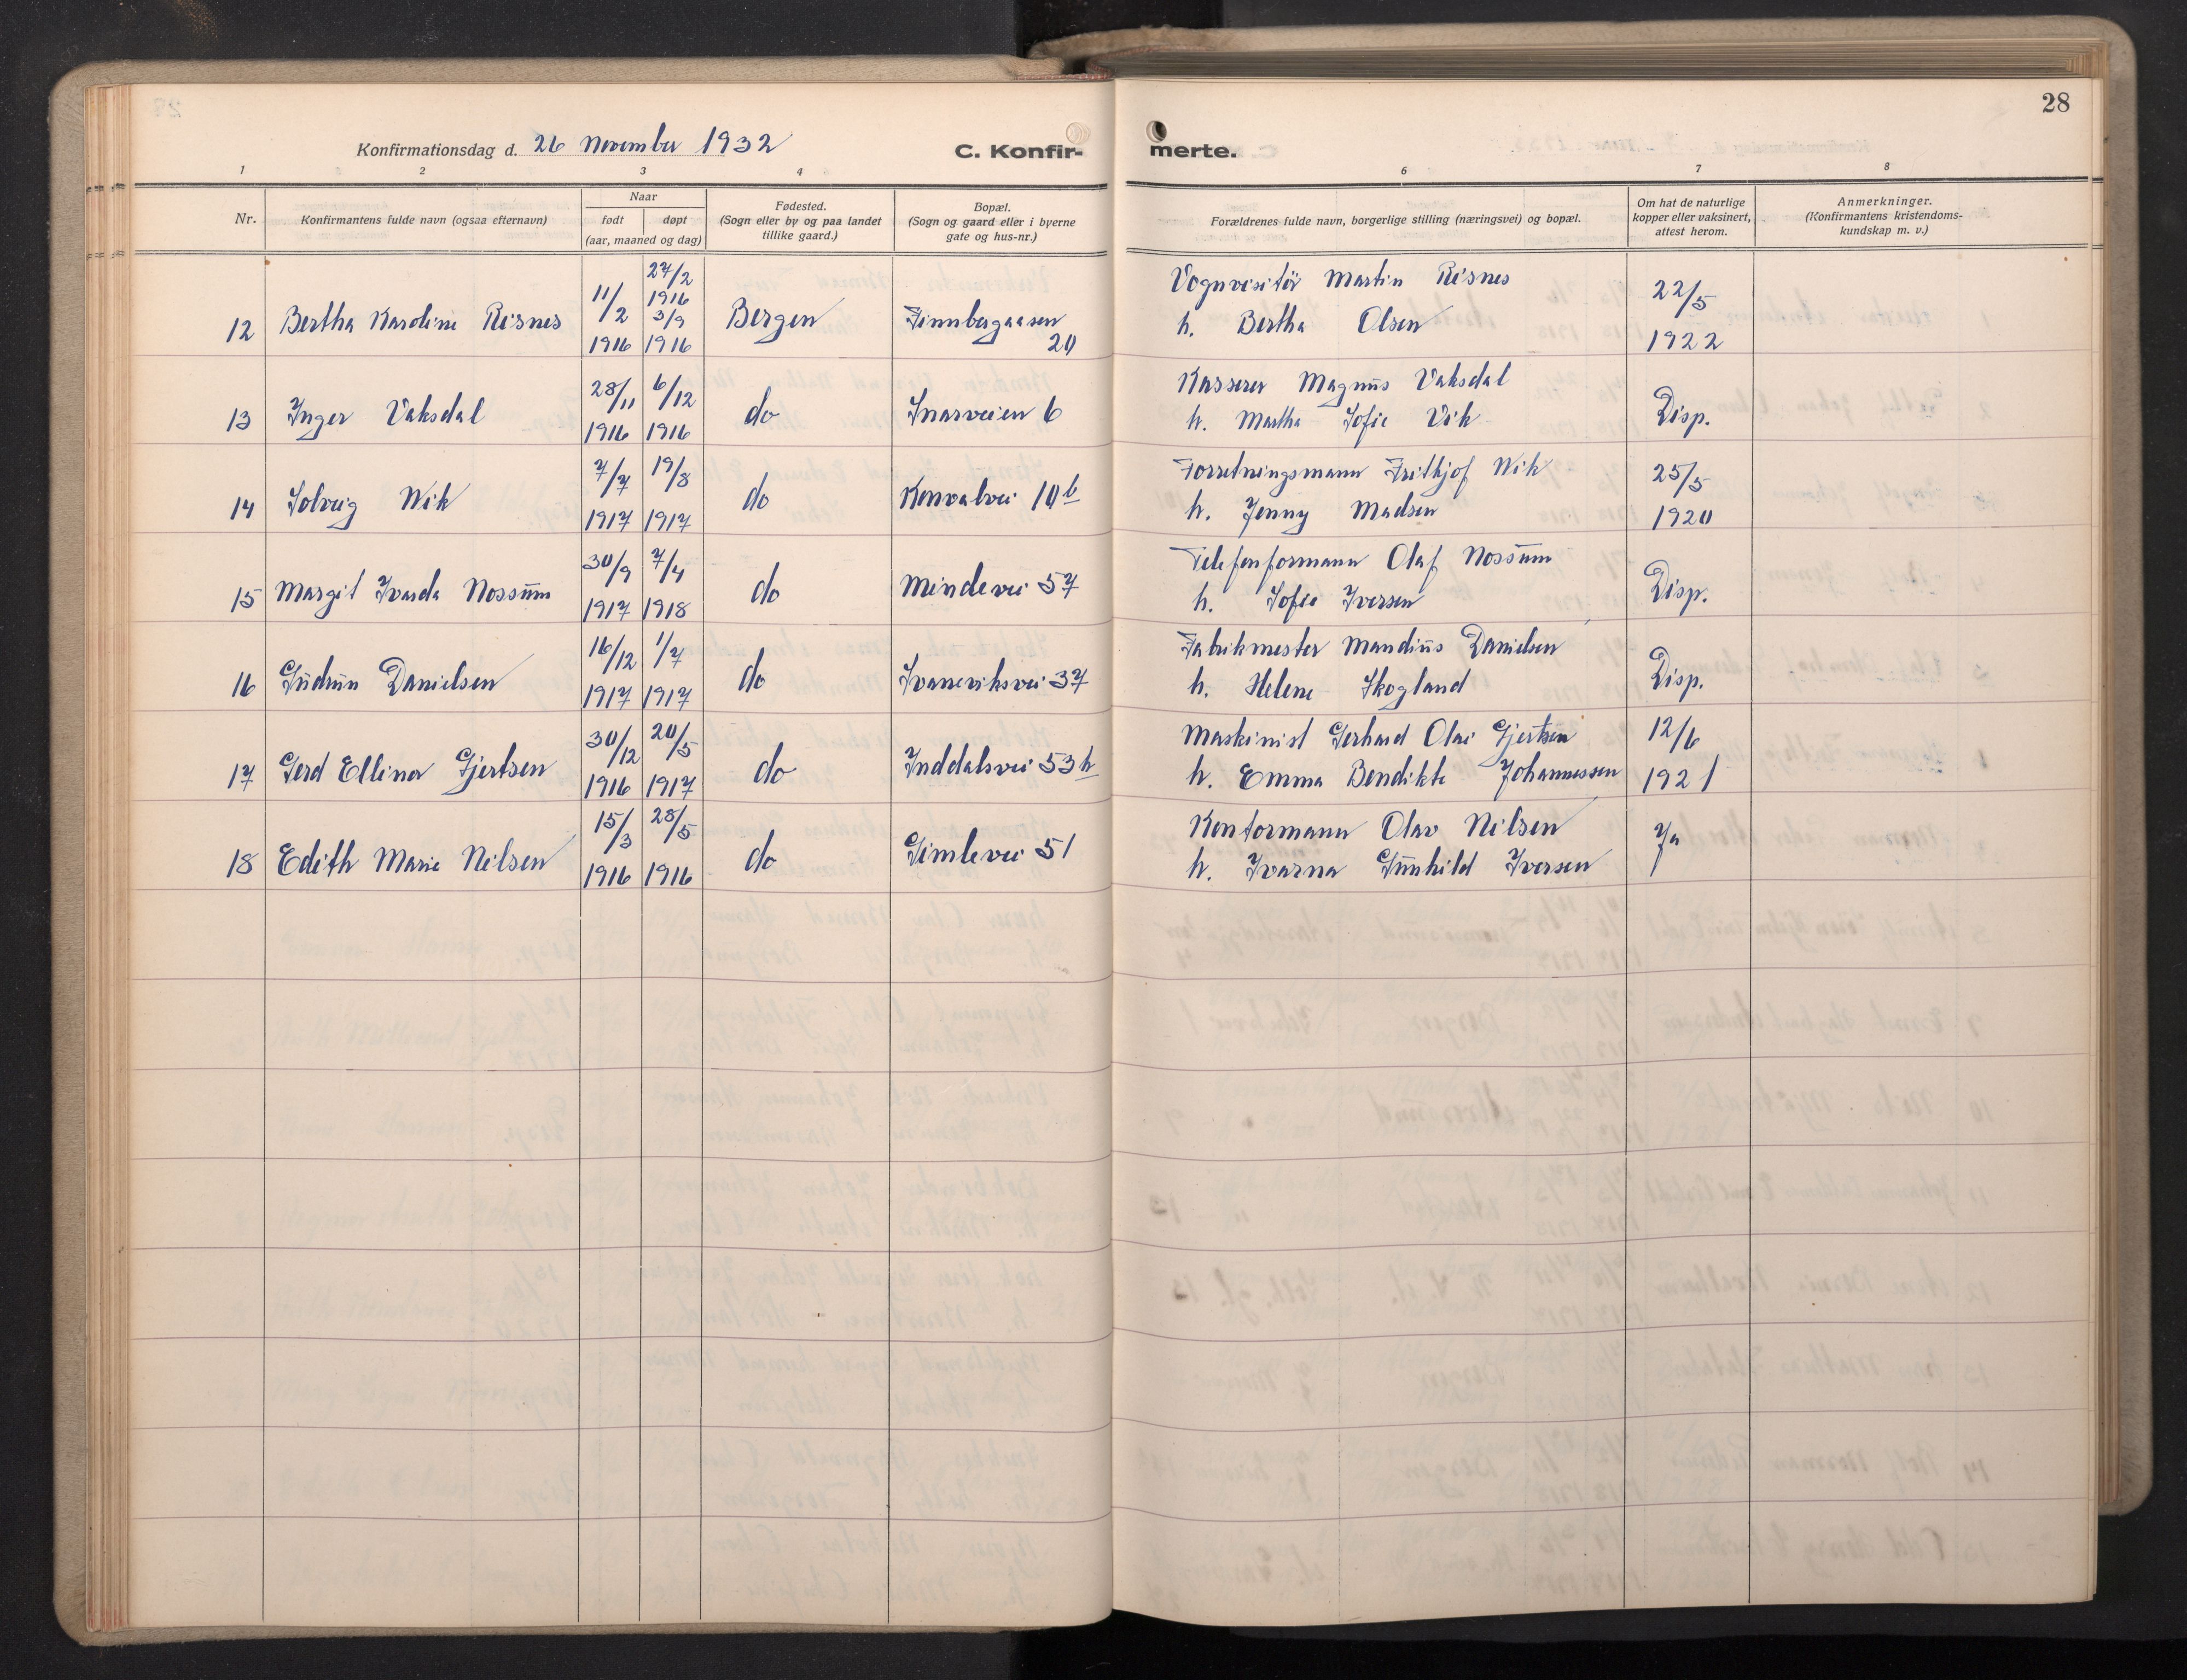 28
Konfirmationsdag d. 26 November 1932
C. Konfir-
merte.
1 2 3 4 5 6 7 8
Nr.
Konfirmantens fulde navn (ogsaa efternavn)
Naar
født døpt
(aar, maaned og dag)
Fødested.
(Sogn eller by og paa landet
tillike gaard.)
Bopæl.
(Sogn og gaard eller i byerne
gate og hus-nr.)
Forældrenes fulde navn, borgerlige stilling (næringsvei) og bopæl.
Om hat de naturlige
kopper eller vaksinert,
attest herom.
Anmerkninger.
(Konfirmantens kristendoms-
kundskap m. v.)
12 Bertha Karoline Risnes 11/2 1916 27/2 1916 3/9 1916 Bergen Finnbergaasen 20
Vognvisitör Martin Risnes
h. Bertha Olsen
22/5 1922
13 Inger Vaksdal 28/11 1916 6/12 1916 do Snarveien 6
Kasserer Magnus Vaksdal
h. Martha Sofie Vik
Disp.
14 Solveig Wik 7/7 1917 19/8 1917 do Konvalvei 10b
Forretningsmann Frithjof Wik
h. Jenny Madsen
25/5 1920
15 Margit Ivarda Nossum 30/9 1917 7/4 1918 do Mindevei 57
Telefonformann Olaf Nossum
h. Sofie Iversen
Disp.
16 Gudrun Danielsen 16/12 1917 1/7 1917 do Svaneviksvei 37
Fabrikmester Mandius Danielsen
h. Helene Skogland
Disp.
17 Gerd Ellinor Gjertsen 30/12 1916 20/5 1917 do Inddalsvei 53h
Maskinist Gerhard Olai Gjertsen
h. Emma Bendikte Johannessen
12/6 1921
18 Edith Marie Nilsen 15/3 1916 28/5 1916 do Gimlevei 51
Kontormann Olav Nilsen
h. Ivarna Gunhild Iversen
Ja